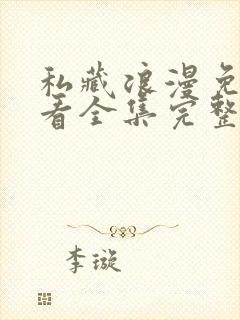 私藏浪漫免
看全集完整
李璇